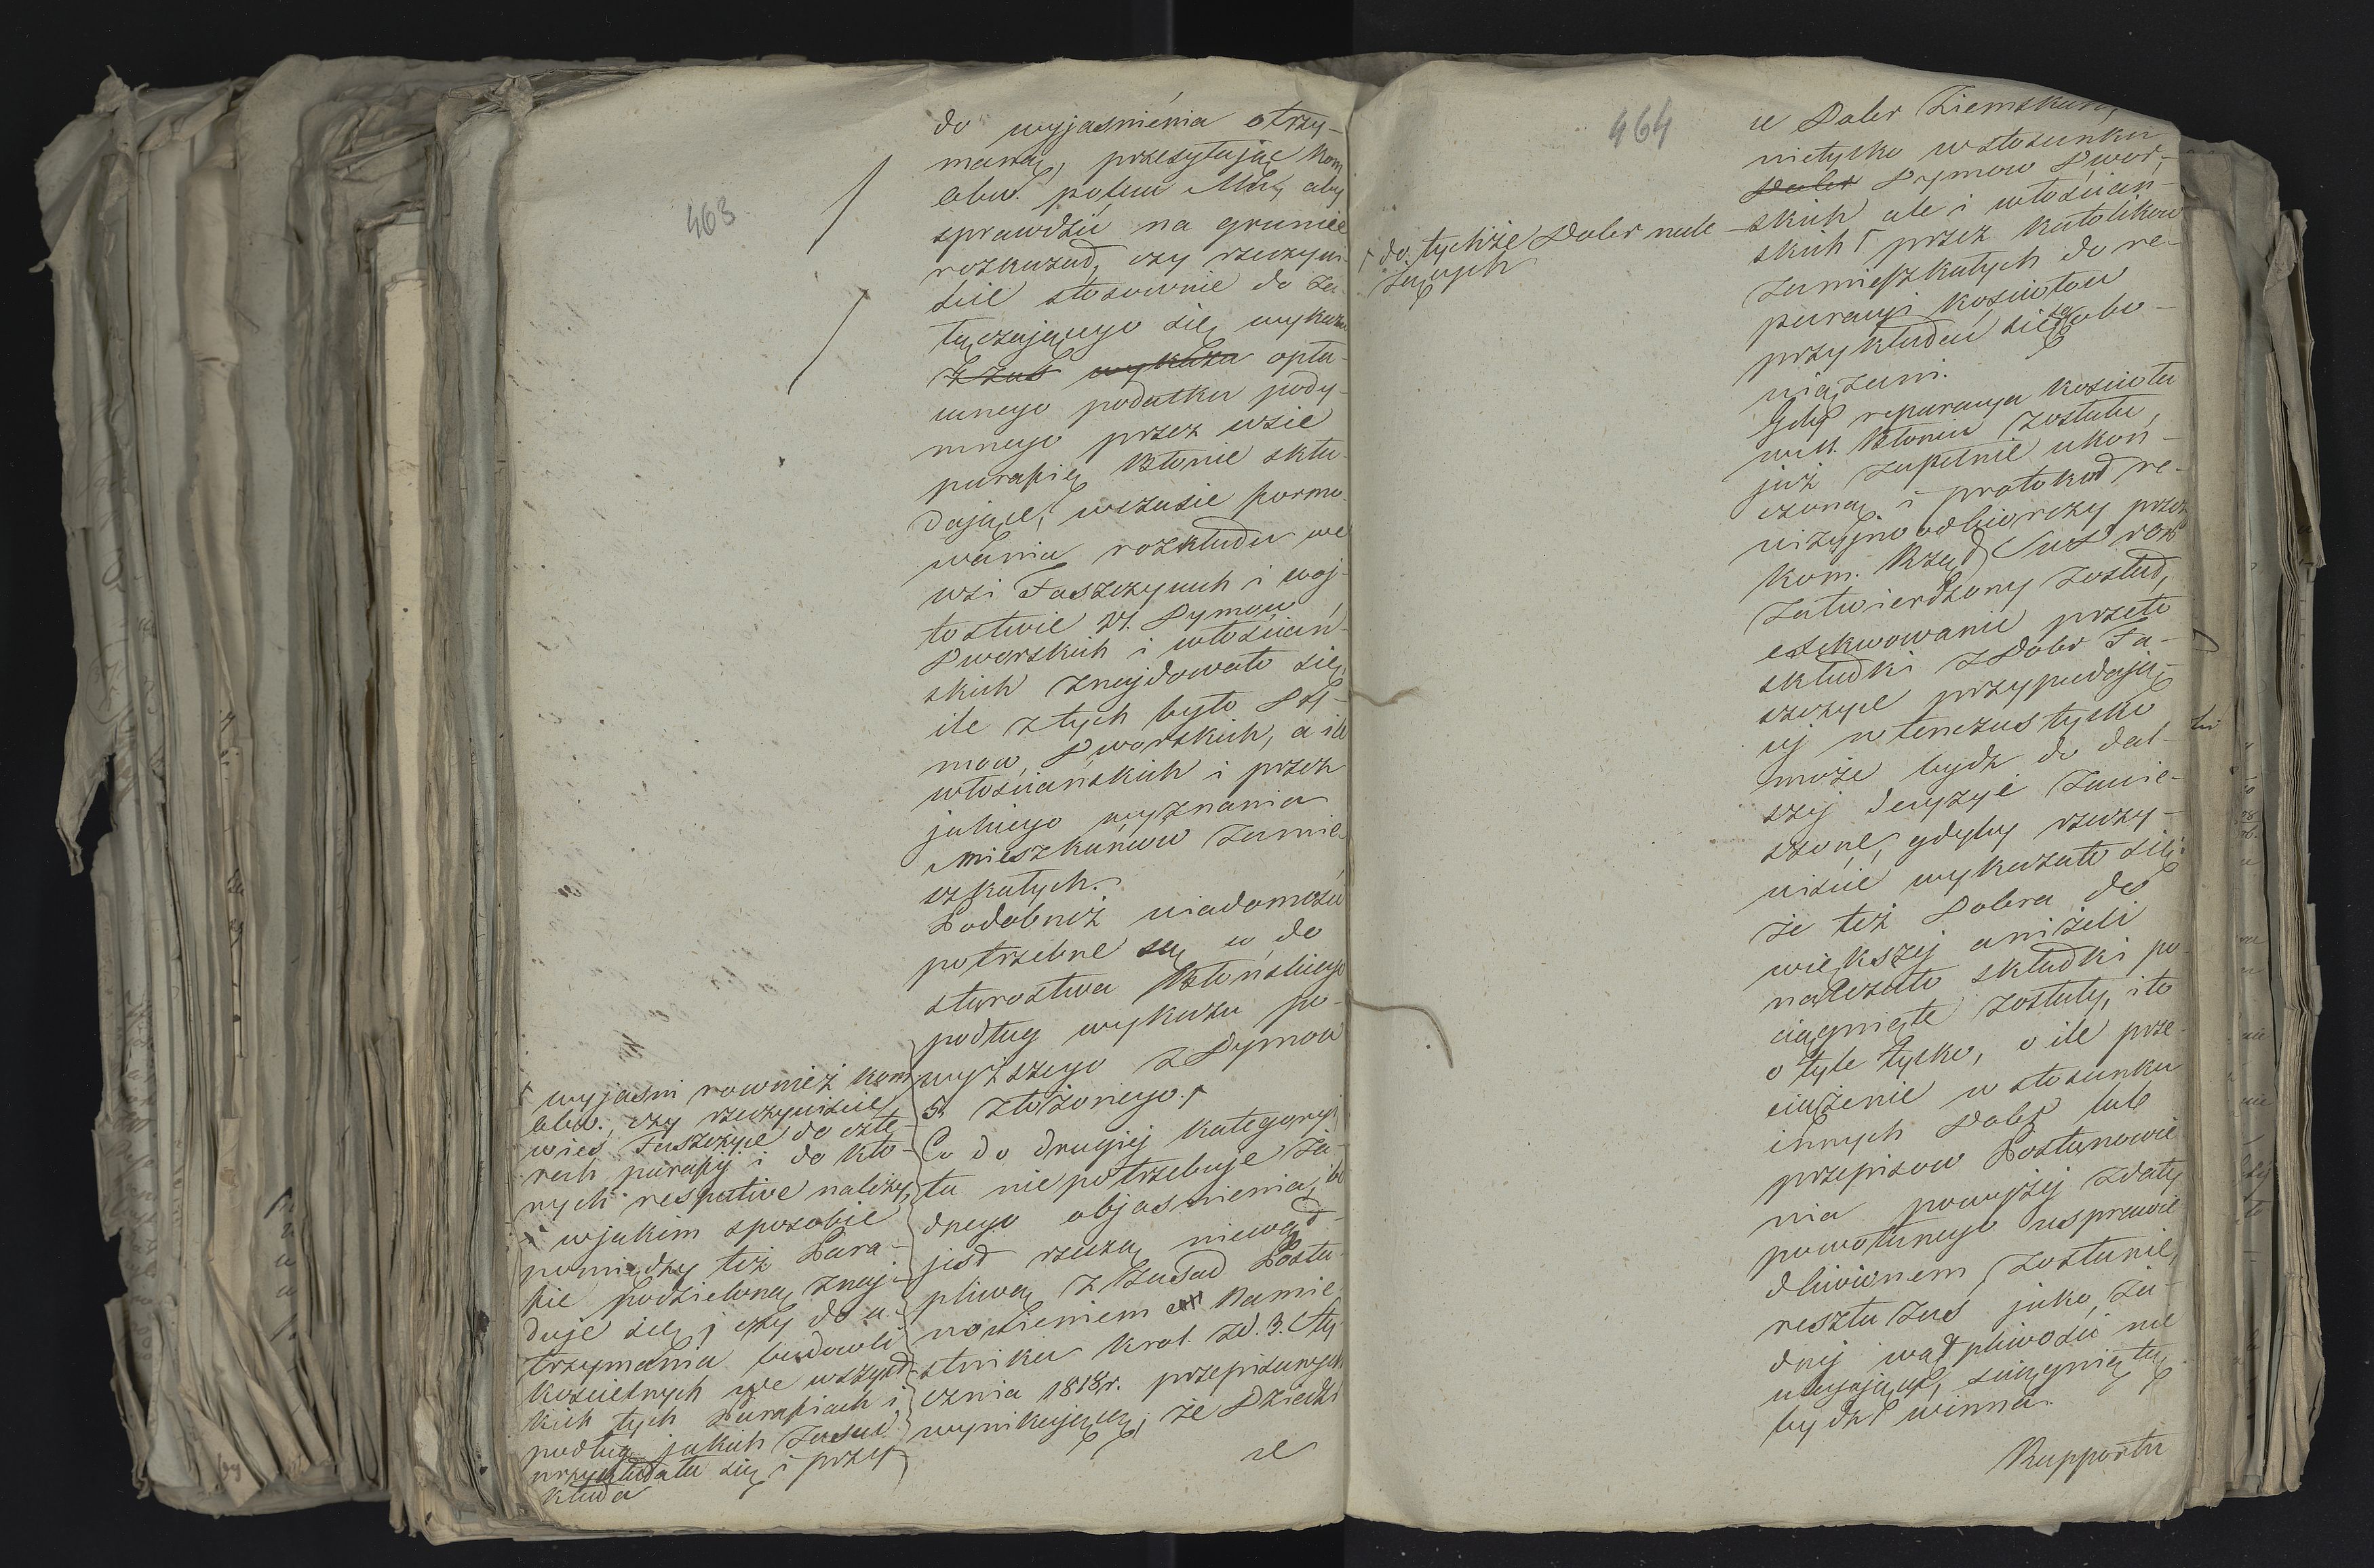 463
do wyjasnienia otrzy-
maną, przesyłając Kom
obw. poleca Mu, aby
sprawdzić na gruncie
rozkazał, czy rzeczywi-
ście stosownie do za-
łączającego się wykazu
wykazu opła-
conego podatku pody-
mnego przez wsie
parafię Błonie skła-
dające, w czasie formo-
wania rozkładu we
wsi Faszczycach i woj-
tostwie 27. Dymow
Dworskich i włościań-
skich znajdowało się,
ile z tych było Dy-
mow, Dworskich, a ile
włościańskich i przez
jakiego wyznania
mieszkancow zamie-
szkałych.
Podobnież wiadomość
potrzebne są co do
starostwa Błońskiego
podług wykazu po-
wyższego z Dymow
5. złożonego. ⌈
Co do drugiej kategoryi
ta nie potrzebuje ża-
dnego objasnienia, bo
jest rzeczą niewąt-
pliwą z zasad Posta-
nowieniem Namie-
stnika Krol. zd. 3. Sty-
cznia 1818 r. przepisanych
wynikającą, że Dziedzi
ce
⌈ wyjasni rownież Kom.
obw., czy rzeczywiście
wieś Faszczyce do czte-
rech parafij i do kto-
rych respective należy,
i w jakim sposobie
pomiędzy też Para-
fie podzieloną znaj-
duje się, i czy do u-
trzymania budowli
kościelnych we wszyst-
kich tych Parafiach i
podług jakich zasad
przykładała się i przy-
kłada
464
ce Dobr Ziemskich,
nietylko w stosunku
Dobr Dymow Dwor-
skich ale i włościań-
skich ⌈ przez katolikow
zamieszkałych do re-
paracyi kościołow
przykładać się są obo-
wiązani.
⌈ do tychże Dobr nale-
żących
Gdy reparacya kościoła
w m. Błoniu została,
już zupełnie ukoń-
czoną i protokuł re-
wizyjno odbiorczy przez
Kom. Rząd
zatwierdzony został,
exekwowanie przeto
składki z Dobr Fa-
szczyce przypadają-
cej w tenczas tylko
może bydź do dal-
szej decyzyi zawie-
szone, gdyby rzeczy-
wiście wykazało się
że też Dobra do
większej aniżeli
należało składki po-
ciągnięte zostały, i to
o tyle tylko, o ile prze-
ciążenie w stosunku
innych Dobr lub
przepisow Postanowie-
nia powyżej z daty
powołanego usprawie-
dliwionem zostanie,
reszta zaś jako, ża-
dnej wątpliwości nie
ulegająca, sciągniętą
bydź winna.
Rapportu